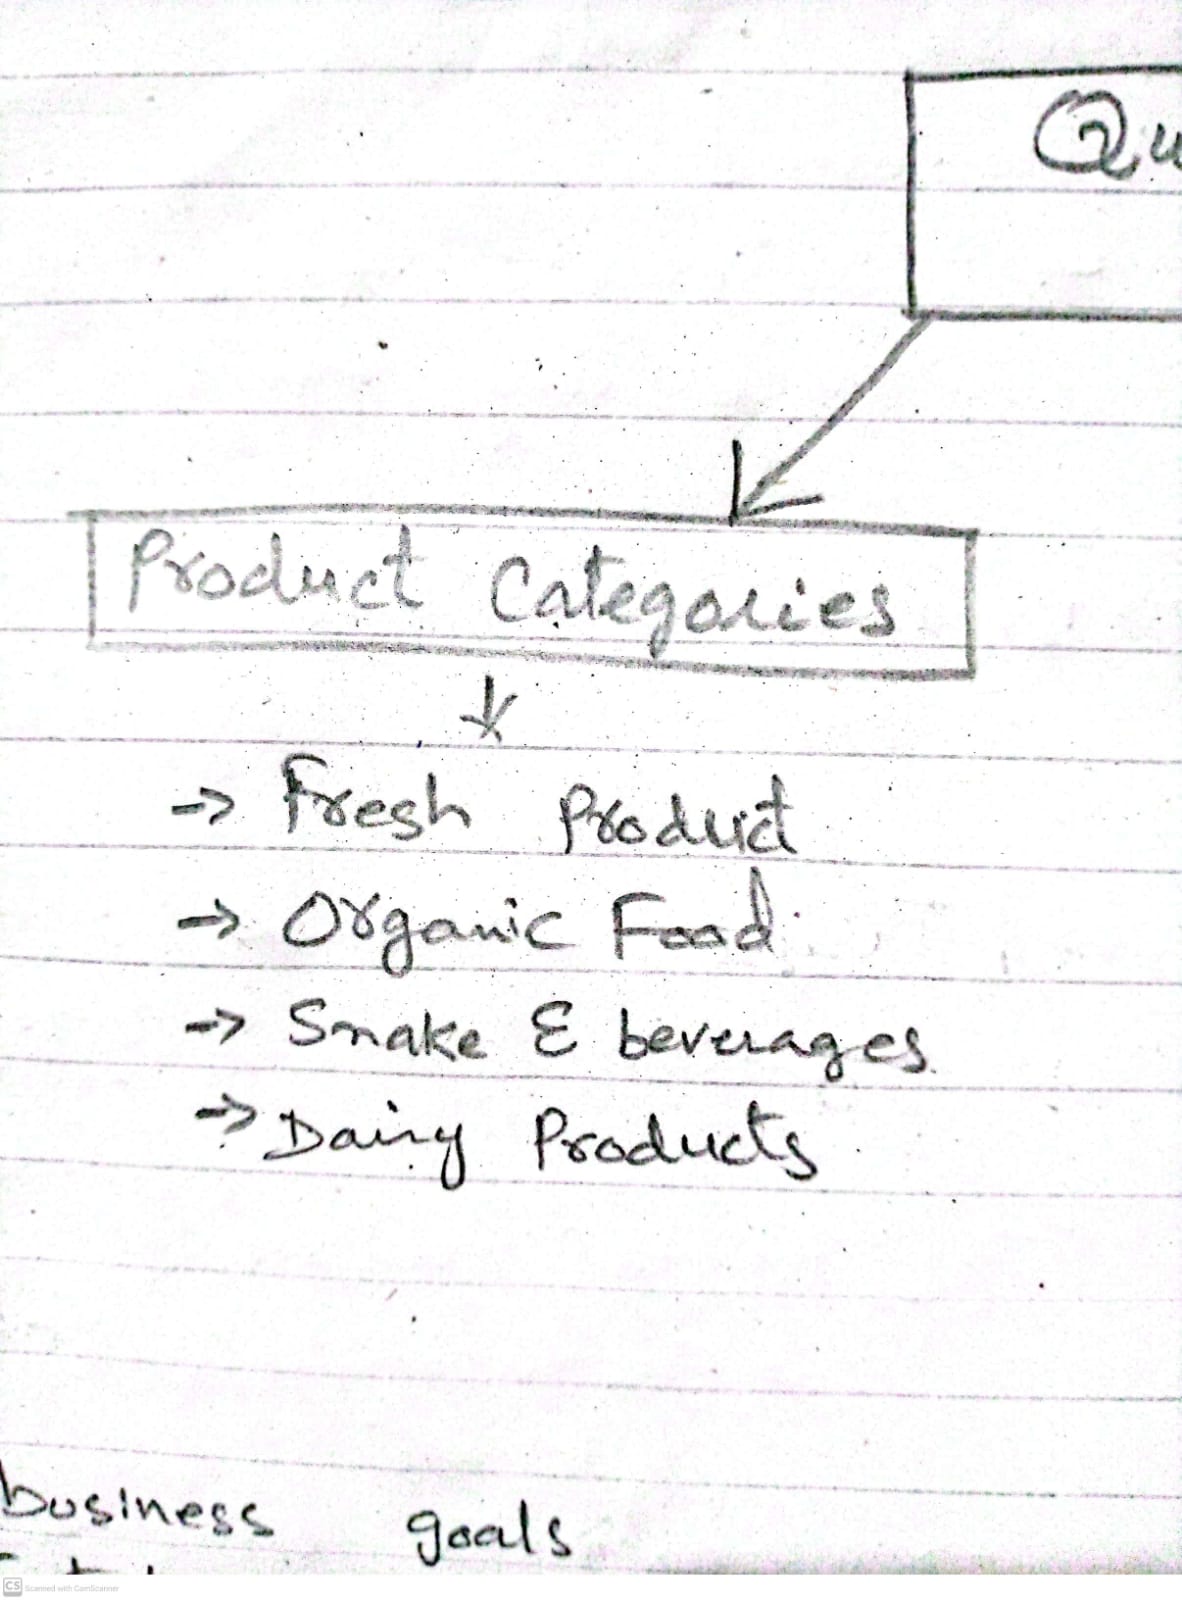 Qu
Product Categories
-> Fresh Product
-> Organic Food
-> Snake & beverages
-> Dairy Products
business goals
CS Scanned with CamScanner